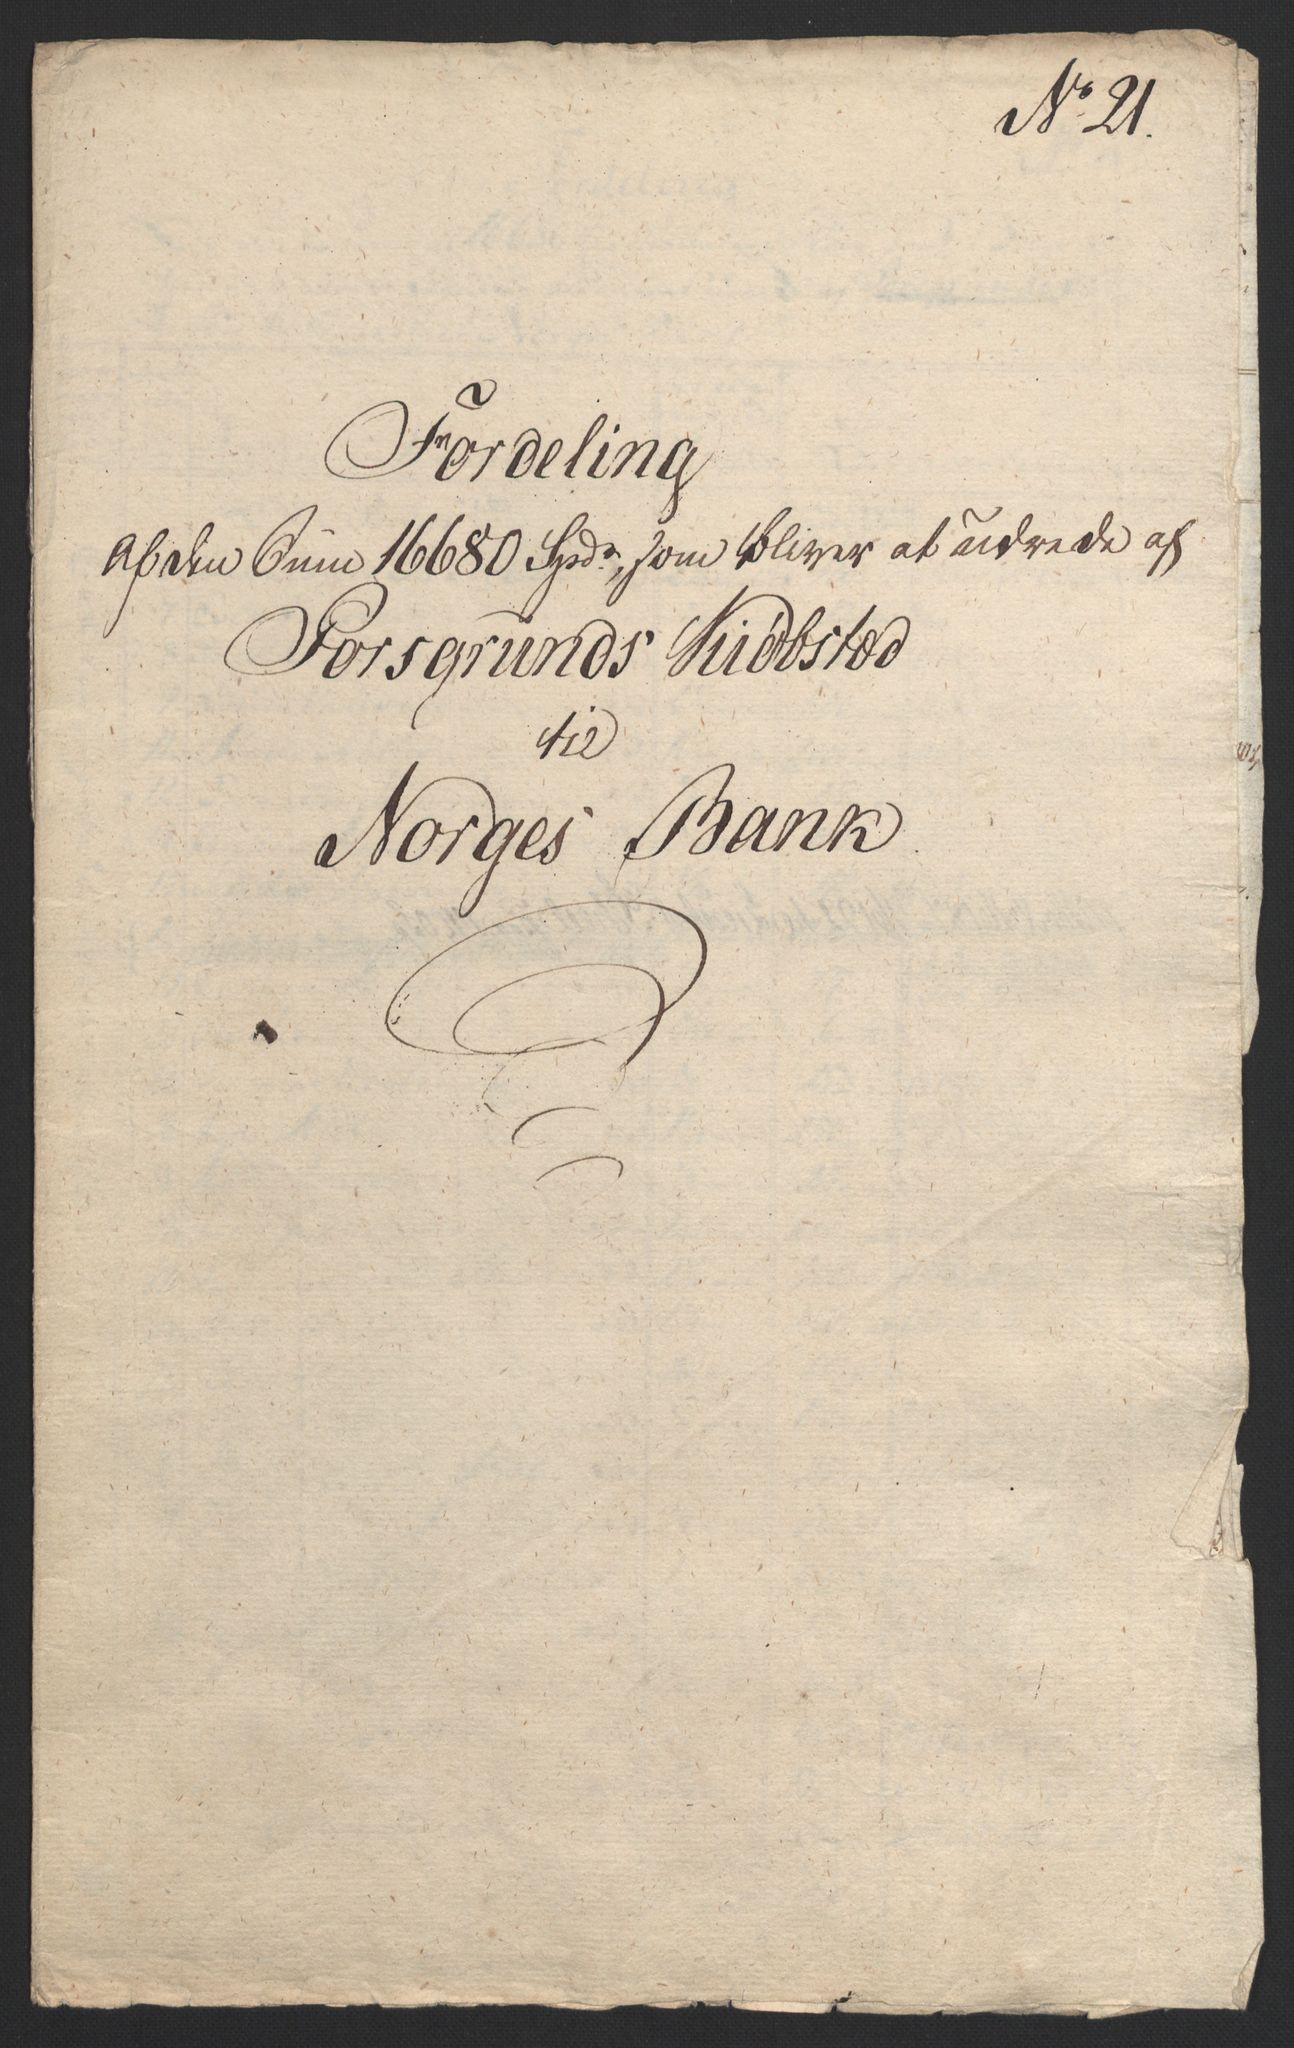 No 21.
Fordeling
af den Sum 16680 Spdr, som bliver at udrede af
Porsgrunds Kiøbstæd
til
Norges Bank